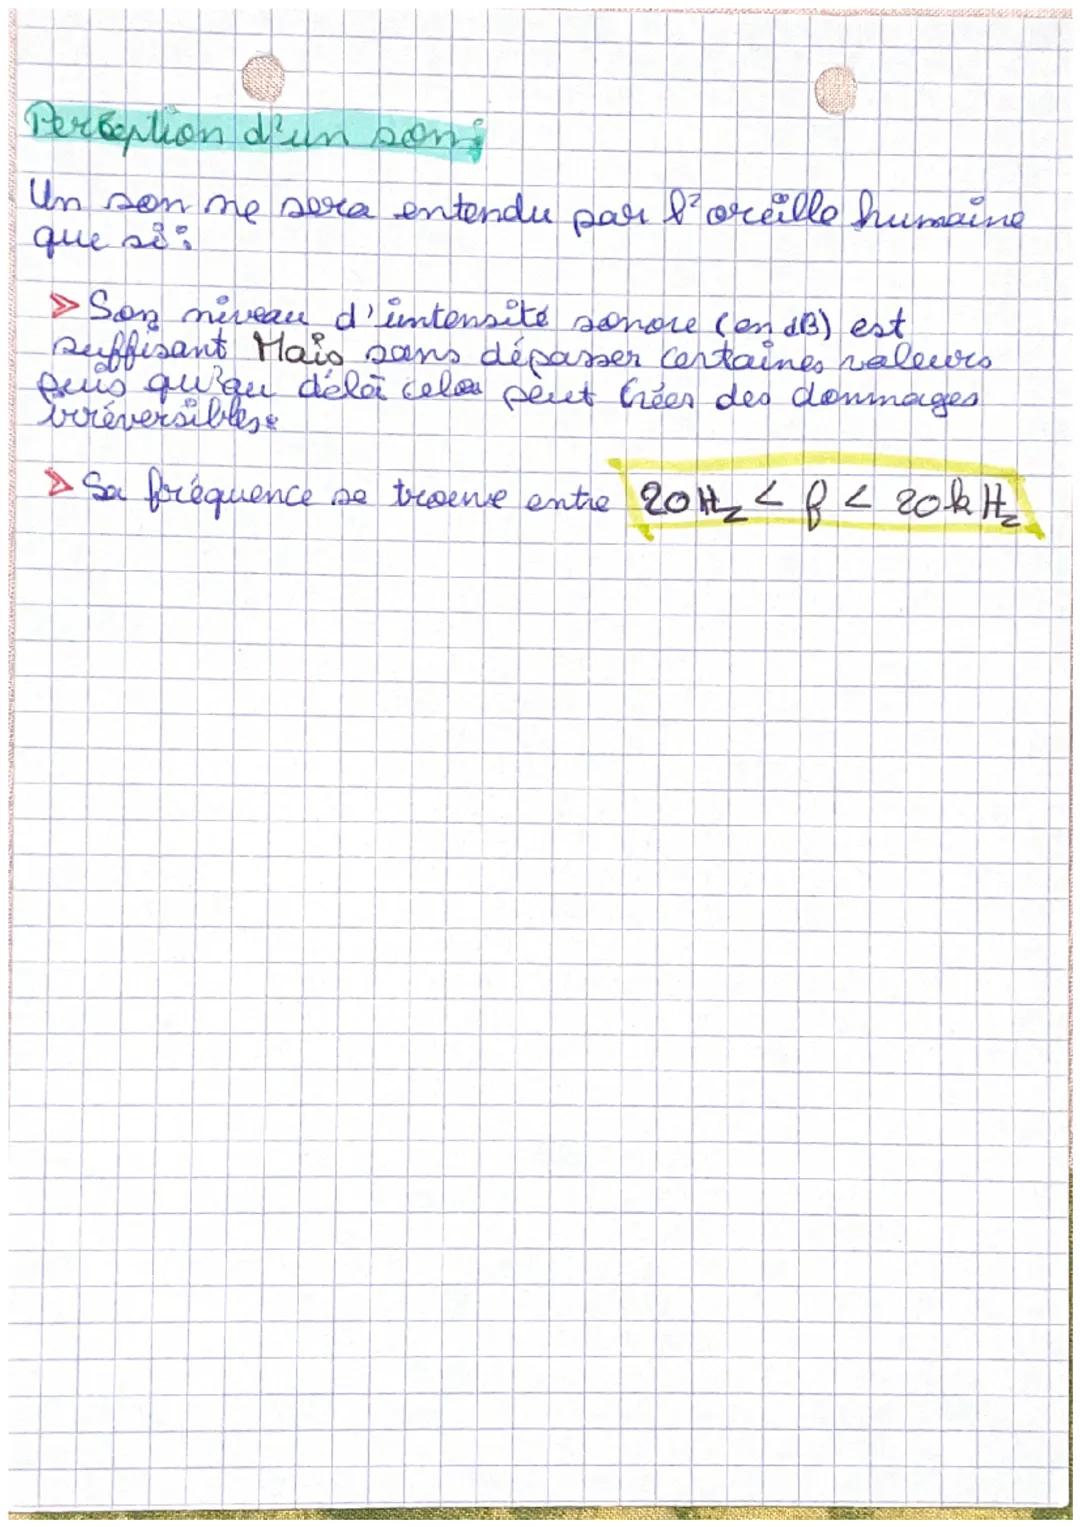 Perception d'un son :
Un son ne sera entendu par l'oreille humaine
que si :
> Son niveau d'intensité sonore (en dB) est
suffisant Mais sans dépasser certaines valeurs
puis qu'au délà cela peut créés des dommages
irréversibles.
> Sa fréquence se trouve entre 20 Hz < f < 20 k Hz